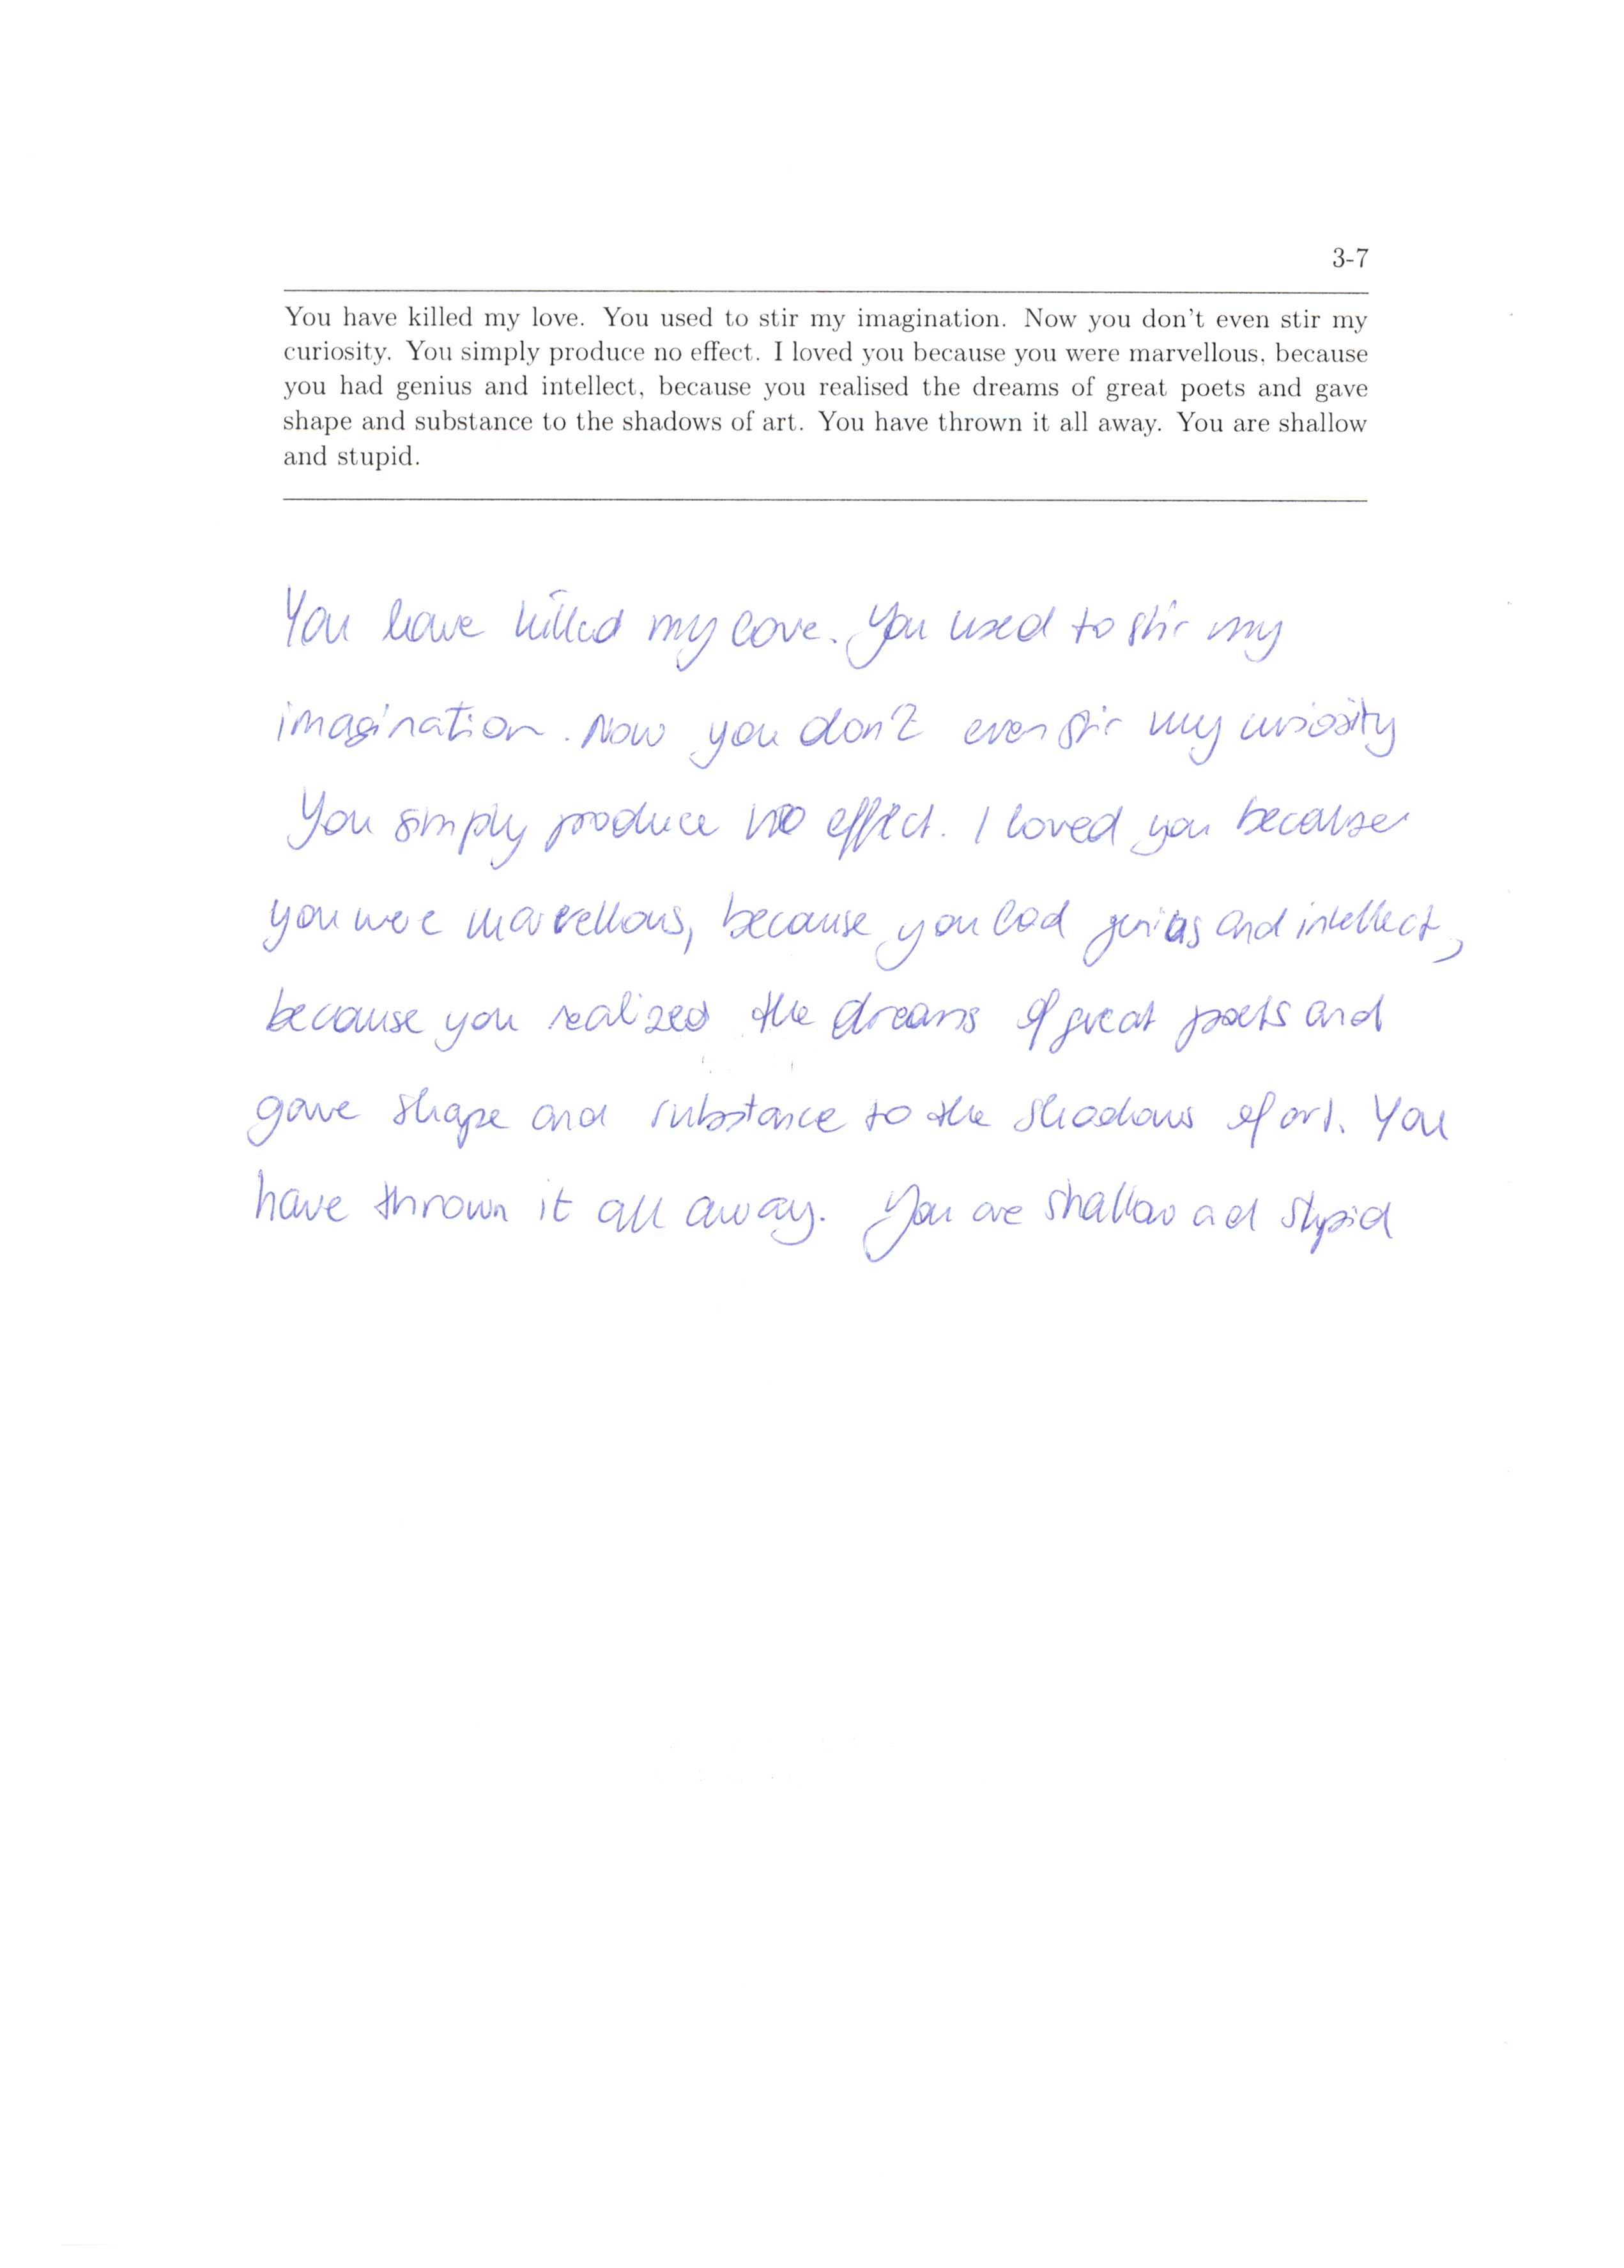 3-7
You have killed my love. You used to stir my imagination. Now you don't even stir my
curiosity. You simply produce no effect. I loved you because you were marvellous, because
you had genius and intellect, because you realised the dreams of great poets and gave
shape and substance to the shadows of art. You have thrown it all away. You are shallow
and stupid.
You have killed my love. You used to stir my
imagination. Now you don't even stir my curiosity
You simply produce no effect. I loved you because
you were marvellous, because you had genius and intellect,
because you realized the dreams of great poets and
gave shape and substance to the shadows of art. You
have thrown it all away. You are shallow and stupid